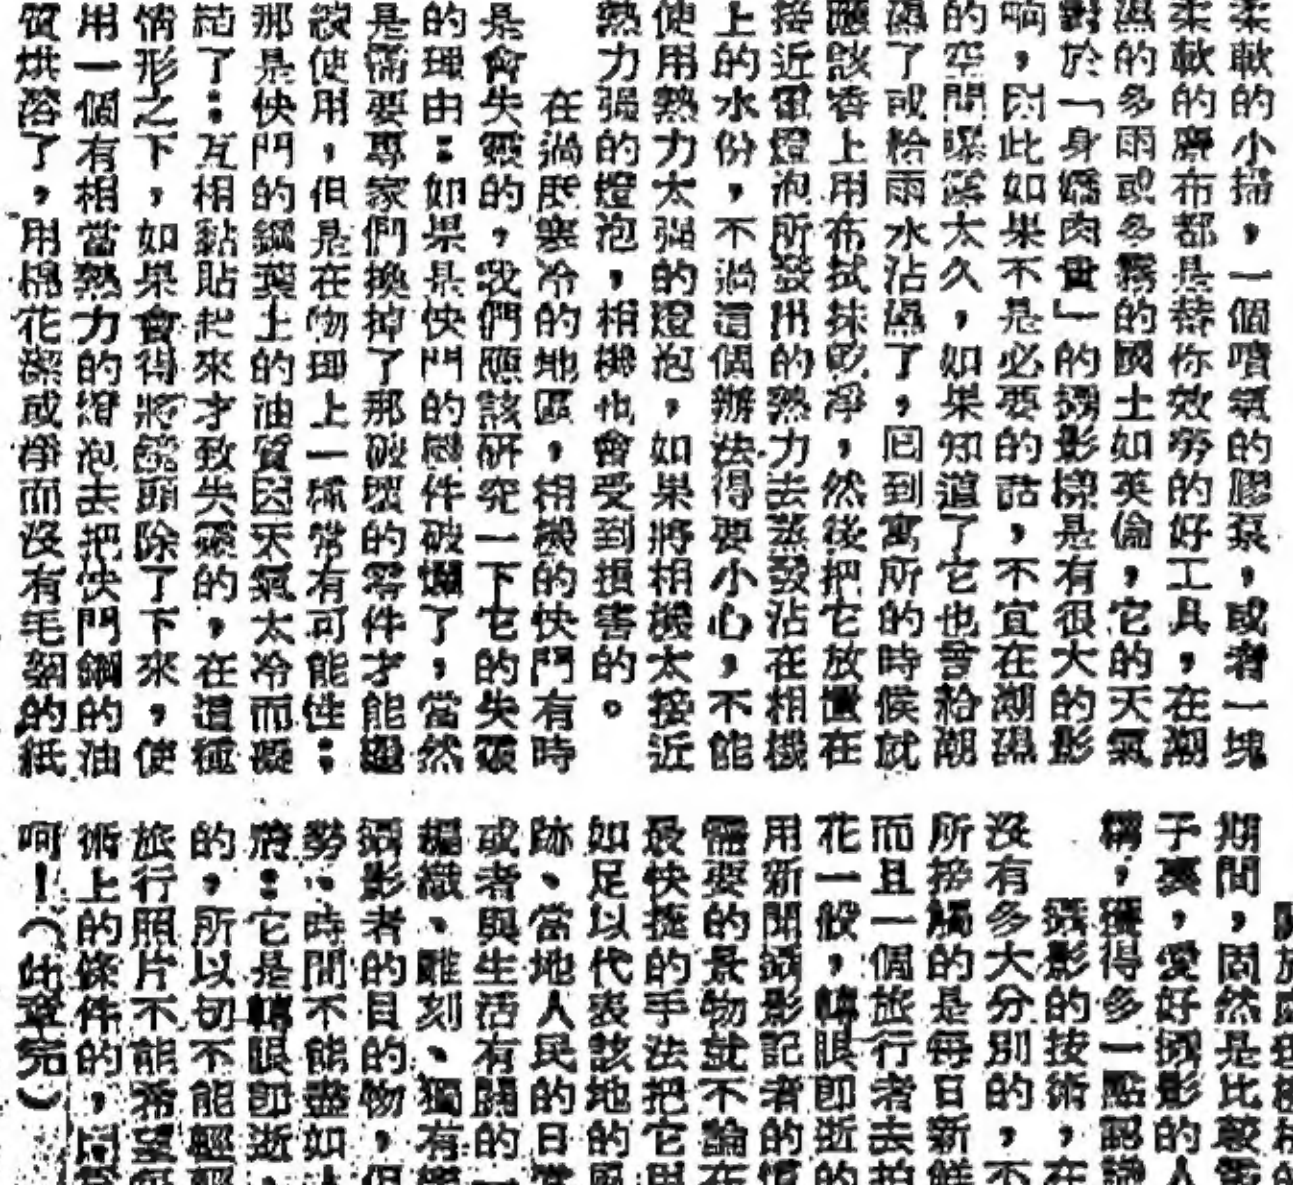 柔軟的小掃，一個噴氣的膠泵，或者一塊
柔軟的麂布都是替你效勞的好工具，在潮
濕的多雨或多霧的國土如英倫，它的天氣
對於「身嬌肉貴」的攝影機是有很大的影
响，因此如果不是必要的話，不宜在潮濕
的空間曝露太久，如果知道了它也曾給潮
濕了或給雨水沾濕了，回到寓所的時候就
應該香上用布拭抹乾淨，然後把它放置在
接近電燈泡所發出的熱力去蒸發沾在相機
上的水份，不過這個辦法得要小心，不能
使用熱力太強的燈泡，如果將相機太接近
熱力強的燈泡，相機也會受到損害的。
在過度寒冷的地區，相機的快門有時
是會失靈的，我們應該研究一下它的失靈
的理由：如果是快門的機件破爛了，當然
是需要專家們換掉了那破壞的零件才能繼
續使用，但是在物理上一樣常有可能性：
那是快門的鋼葉上的油質因天氣太冷而凝
結了：互相黏貼起來才致失靈的，在這種
情形之下，如果會得將鏡頭除了下來，使
用一個有相當熱力的燈泡去把快門鋼的油
質烘溶了，用棉花潔或淨而沒有毛類的紙
期間，固然是比較
子裏，愛好攝影的人
稱，獲得多一點認識
攝影的技術，在
沒有多大分別的，不
所接觸的是每日新鮮
而且一個旅行者去拍
花一般，轉眼即逝的
用新聞攝影記者的
需要的景物就不論在
最快捷的手法把它用
如足以代表該地的風
跡、當地人民的日常
或者與生活有關的一
編織、雕刻、獨有
攝影者的目的物，但
勢：時間不能盡如人
將：它是轉眼即逝，
的，所以切不能輕輕
旅行照片不能希望每
術上的條件的，同
呵！（此章完）